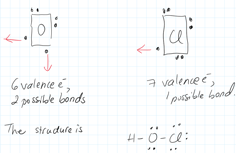 O
Cl
6 valence e⁻,
2 possible bonds
7 valence e⁻,
1 possible bond.
The structure is
H–O–Cl: